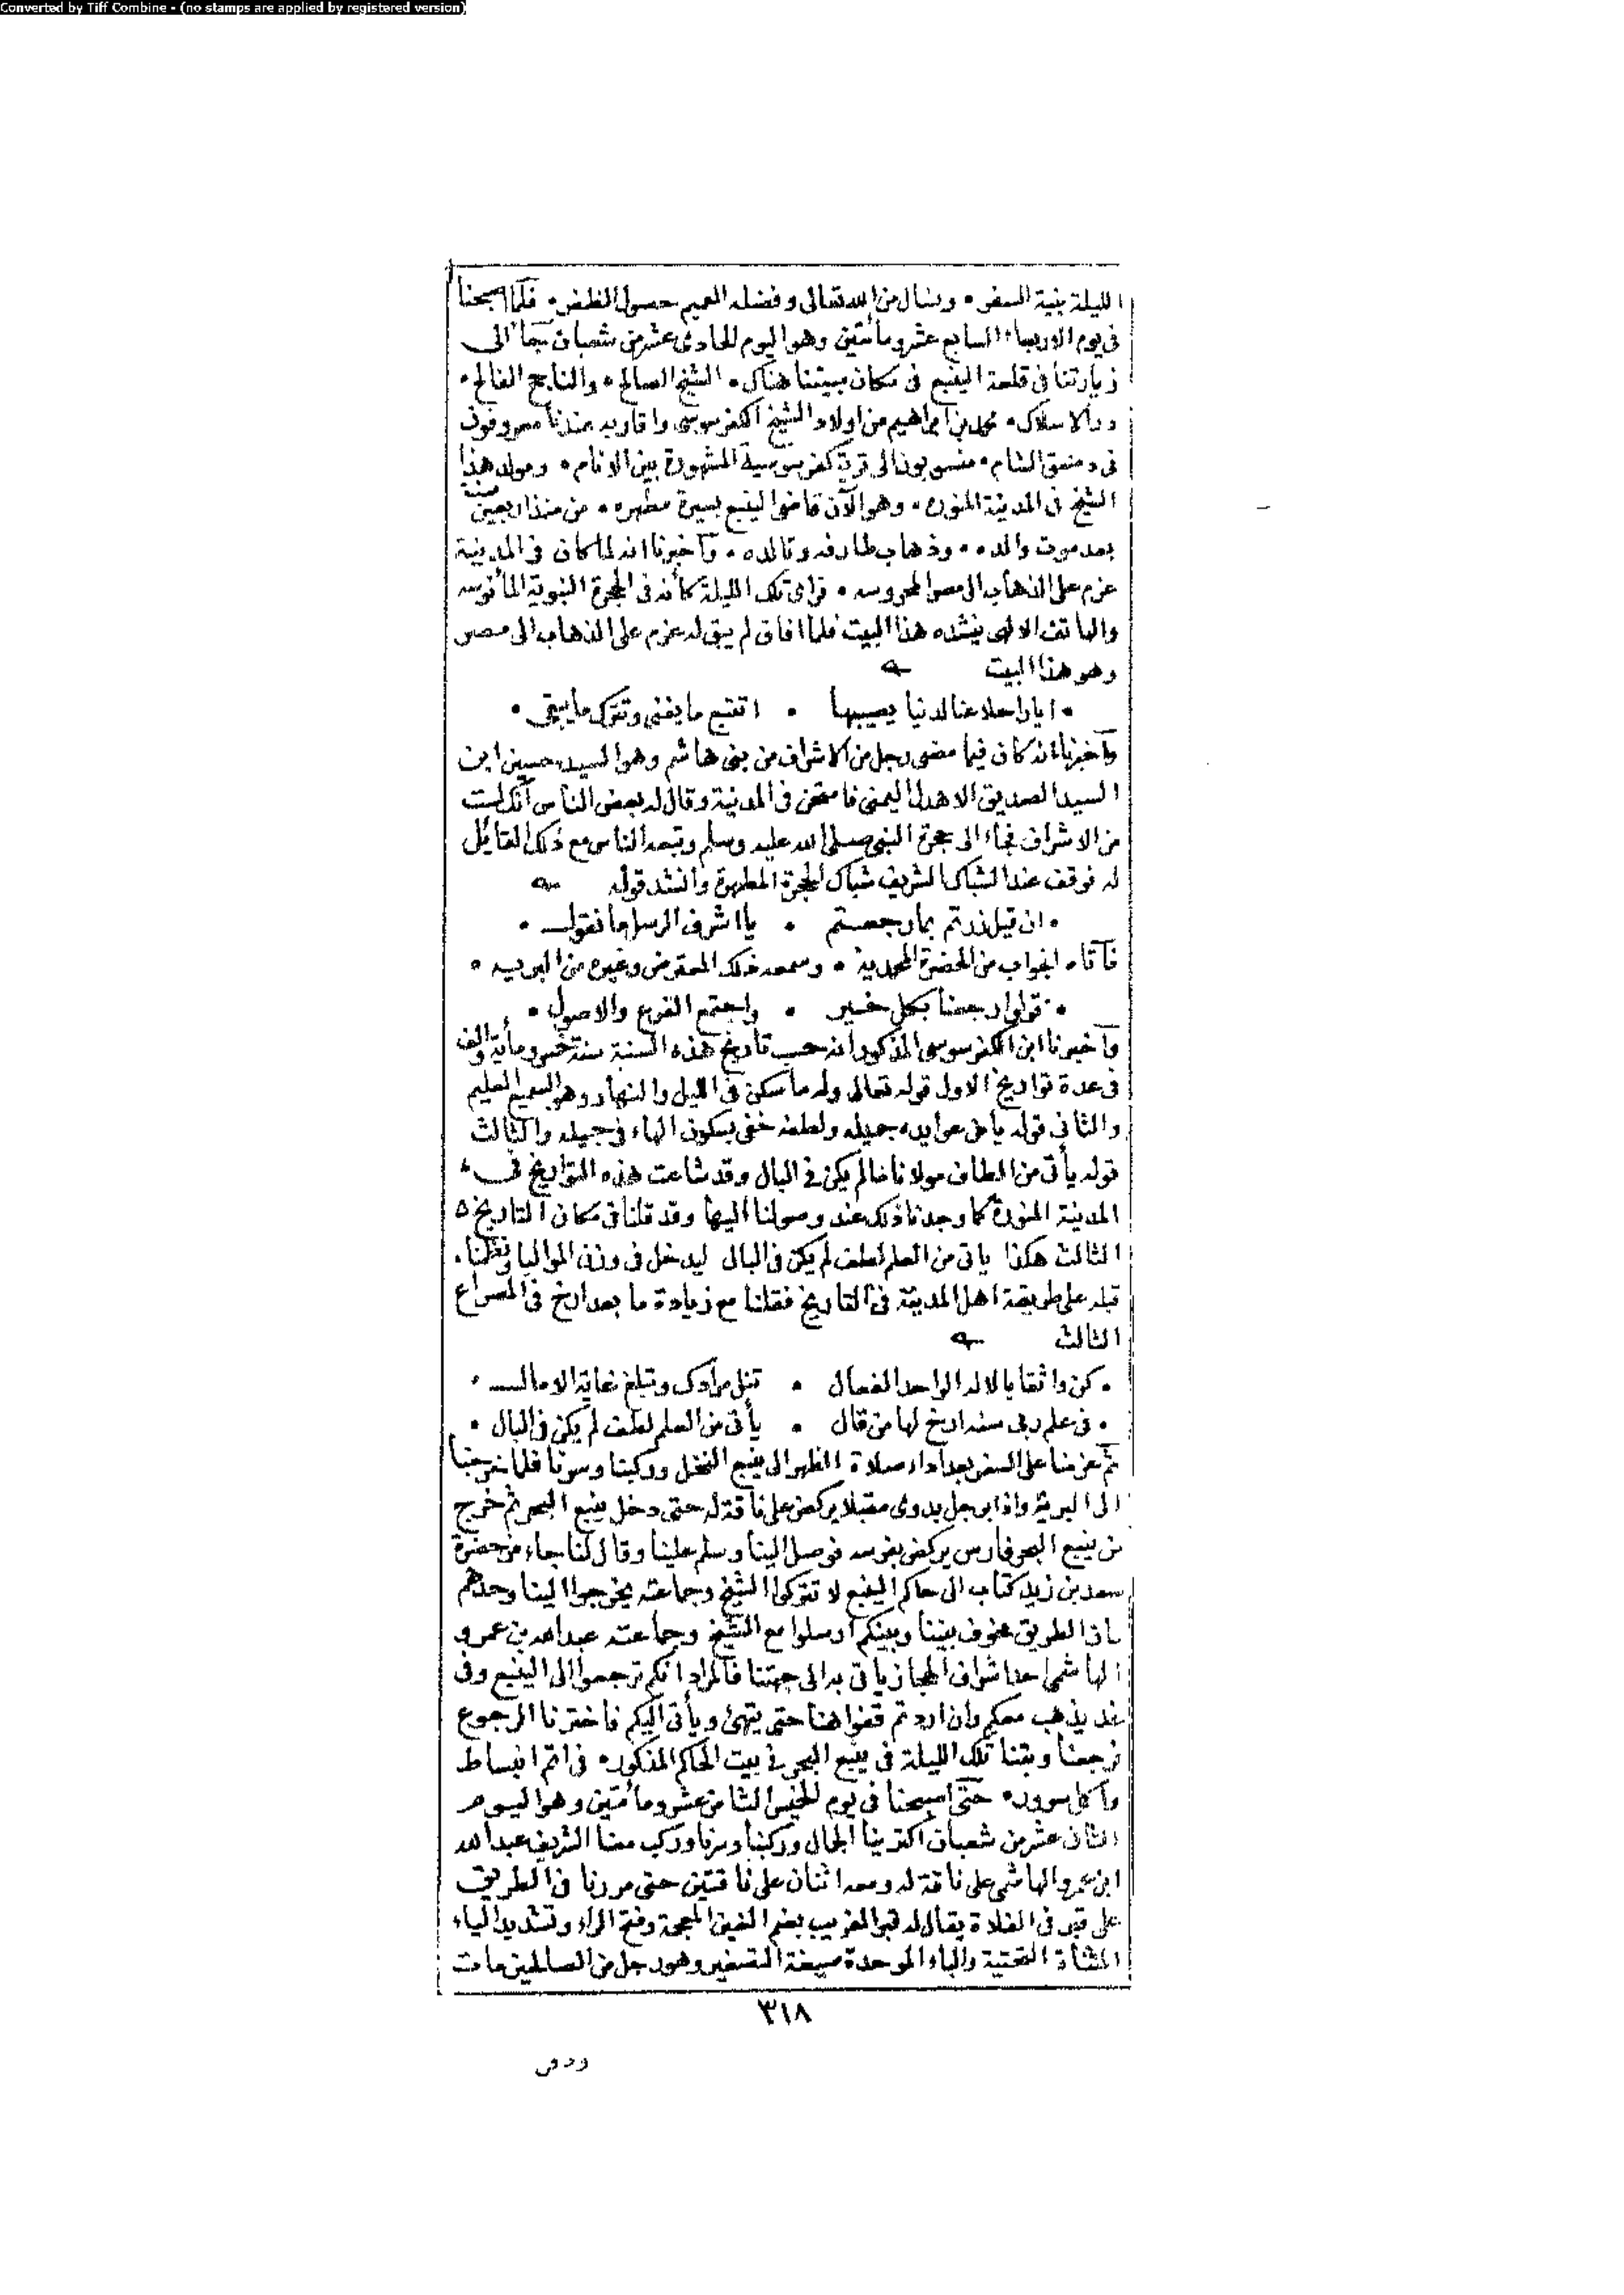 Converted by Tiff Combine - (no stamps are applied by registered version)
الليلة بنية السفر • ونسال من الله تعالى وفضله العميم حصول الظفر • فلما اصبحنا
فى يوم الاربعاء السابع عشر ومأتين وهو اليوم الحادى عشر من شعبان جاء الى
زيارتنا فى قلعة الينبع فى مكان بيتنا هناك • الشيخ الصالح • والناجح الفالح •
الاسلاك • محمد بن ابراهيم من اولاد الشيخ الكفرسوسى واقاربه عندنا معروفون
فى دمشق الشام • منسوبون الى قرية كفرسوسية المشهورة بين الانام • ومولد هذا
الشيخ فى المدينة المنوره • وهو الآن قاضى الينبع بسيرة مطهره • من منذ اربعين سنة
بعد موت والده • وذهاب طارفه وتالده • وآخبرنا انه لما كان فى المدينة
عزم على الذهاب الى مصر المحروسه • فراى تلك الليلة كأنه فى الحجرة النبوية المأنوسه
والهاتف الالهى ينشده هذا البيت فلما افاق لم يبق له عزم على الذهاب الى مصر
وهو هذا البيت
• ايا راحلا عنا لدنيا يصيبها • اتتبع ما يفنى وتترك ما يبقى •
وآخبرنا انه كان فيما مضى رجل من الاشراف من بنى هاشم وهو السيد حسين ابن
السيد الصديق الاهدل اليمنى فامتحن فى المدينة وقال له بعض الناس آنك لست
من الاشراف فجاء الى حجرة النبى صلى الله عليه وسلم وتبعه الناس مع ذلك القائل
له فوقف عند الشباك الشريف شباك الحجرة المطهرة وانشد قوله
• ان قيل زرتم بما رجعتم • يا اشرف الرسل ما نقول •
فآتاه الجواب من الحضرة المحمدية • وسمعه ذلك المعترض وغيره من البريه •
• قولوا رجعنا بكل خير • واجتمع الفرع والاصول •
وآخبرنا ابن الكفرسوسى المذكور انه حسب تاريخ هذه السنة سنة خمس ومأية والف
فى عدة تواريخ الاول قوله تعالى وله ما سكن فى الليل والنهار وهو السميع العليم
والثانى قوله يا من عوايده جميله ولطفه خفى بسكون الهاء فى جميله والثالث
قوله يأتى من الطاف مولانا ما لم يكن فى البال وقد شاعت هذه التواريخ فى
المدينة المنورة كما وجدنا ذلك عند وصولنا اليها وقد قلنا فى مكان التاريخ
الثالث هكذا ياتى من العلم لطف لم يكن فى البال ليدخل فى وزن المواليا ونظمنا
قبله على طريقة اهل المدينة فى التاريخ فقلنا مع زيادة ما بعد ارخ فى المصراع
الثالث
• كن واثقا بالاله الواحد الفعال • تنل مرادك وتبلغ غاية الامال •
• فى علم ربى سنه ارخ لها من قال • يأتى من العلم لطف لم يكن فى البال •
ثم عزمنا على السفر بعد اداء صلاة الظهر الى ينبع النخل وركبنا وسرنا فلما خرجنا
الى البرية واذا برجل بدوى مقبلا يركض على ناقة له حتى دخل ينبع البحر ثم خرج
من ينبع البحر فارس يركض بفرسه فوصل الينا وسلم علينا وقال لنا جاء من حضرة
سعد بن زيد كتاب الى حاكم الينبع لا تتركوا الشيخ وجماعته يخرجوا الينا وحدهم
فان الطريق مخوف بيننا وبينكم ارسلوا مع الشيخ وجماعته عبد الله بن عمرو
الهاشمى احد اشراف الحجاز ياتى به الى جهتنا فالمراد انكم ترجعوا الى الينبع وفى
غد يذهب معكم وان اردتم قفوا هنا حتى يتهئ ويأتى اليكم فاخترنا الرجوع
فرجعنا وبتنا تلك الليلة فى ينبع البحر فى بيت الحاكم المذكور • فى اتم انبساط
وآكل سرور • حتى اصبحنا فى يوم الخميس الثامن عشر ومأتين وهو اليوم
الثانى عشر من شعبان اكترينا الجمال وركبنا وسرنا وركب معنا الشريف عبد الله
ابن عمرو الهاشمى على ناقة له ومعه اثنان على ناقتين حتى مررنا فى الطريق
على قبر فى الفلاة يقال له قبر الغريب بضم الغين المعجمة وفتح الراء وتشديد الياء
المثناة التحتية والباء الموحدة صيغة التصغير وهو رجل من الصالحين مات
٣١٨